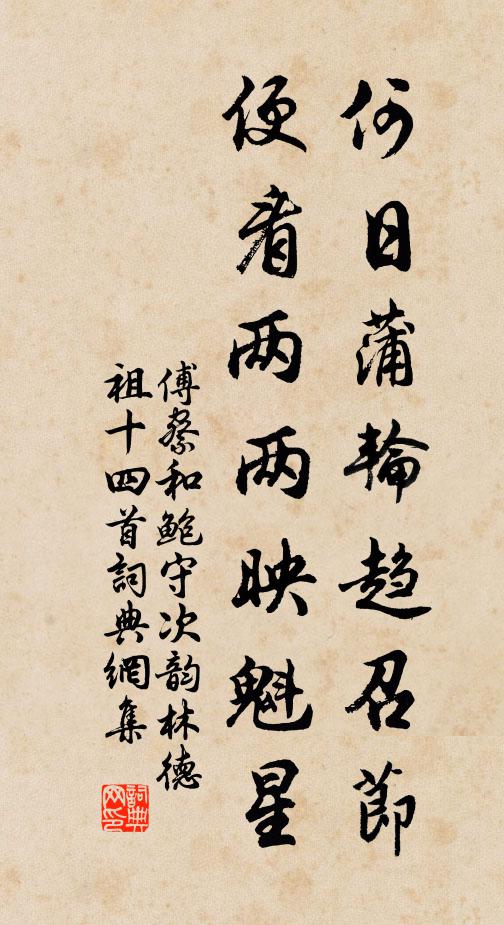 何日蒲輪趋召節
便看两两映魁星
傅察和鲍守次韵林德
祖十四首詞典網集
詞典网印